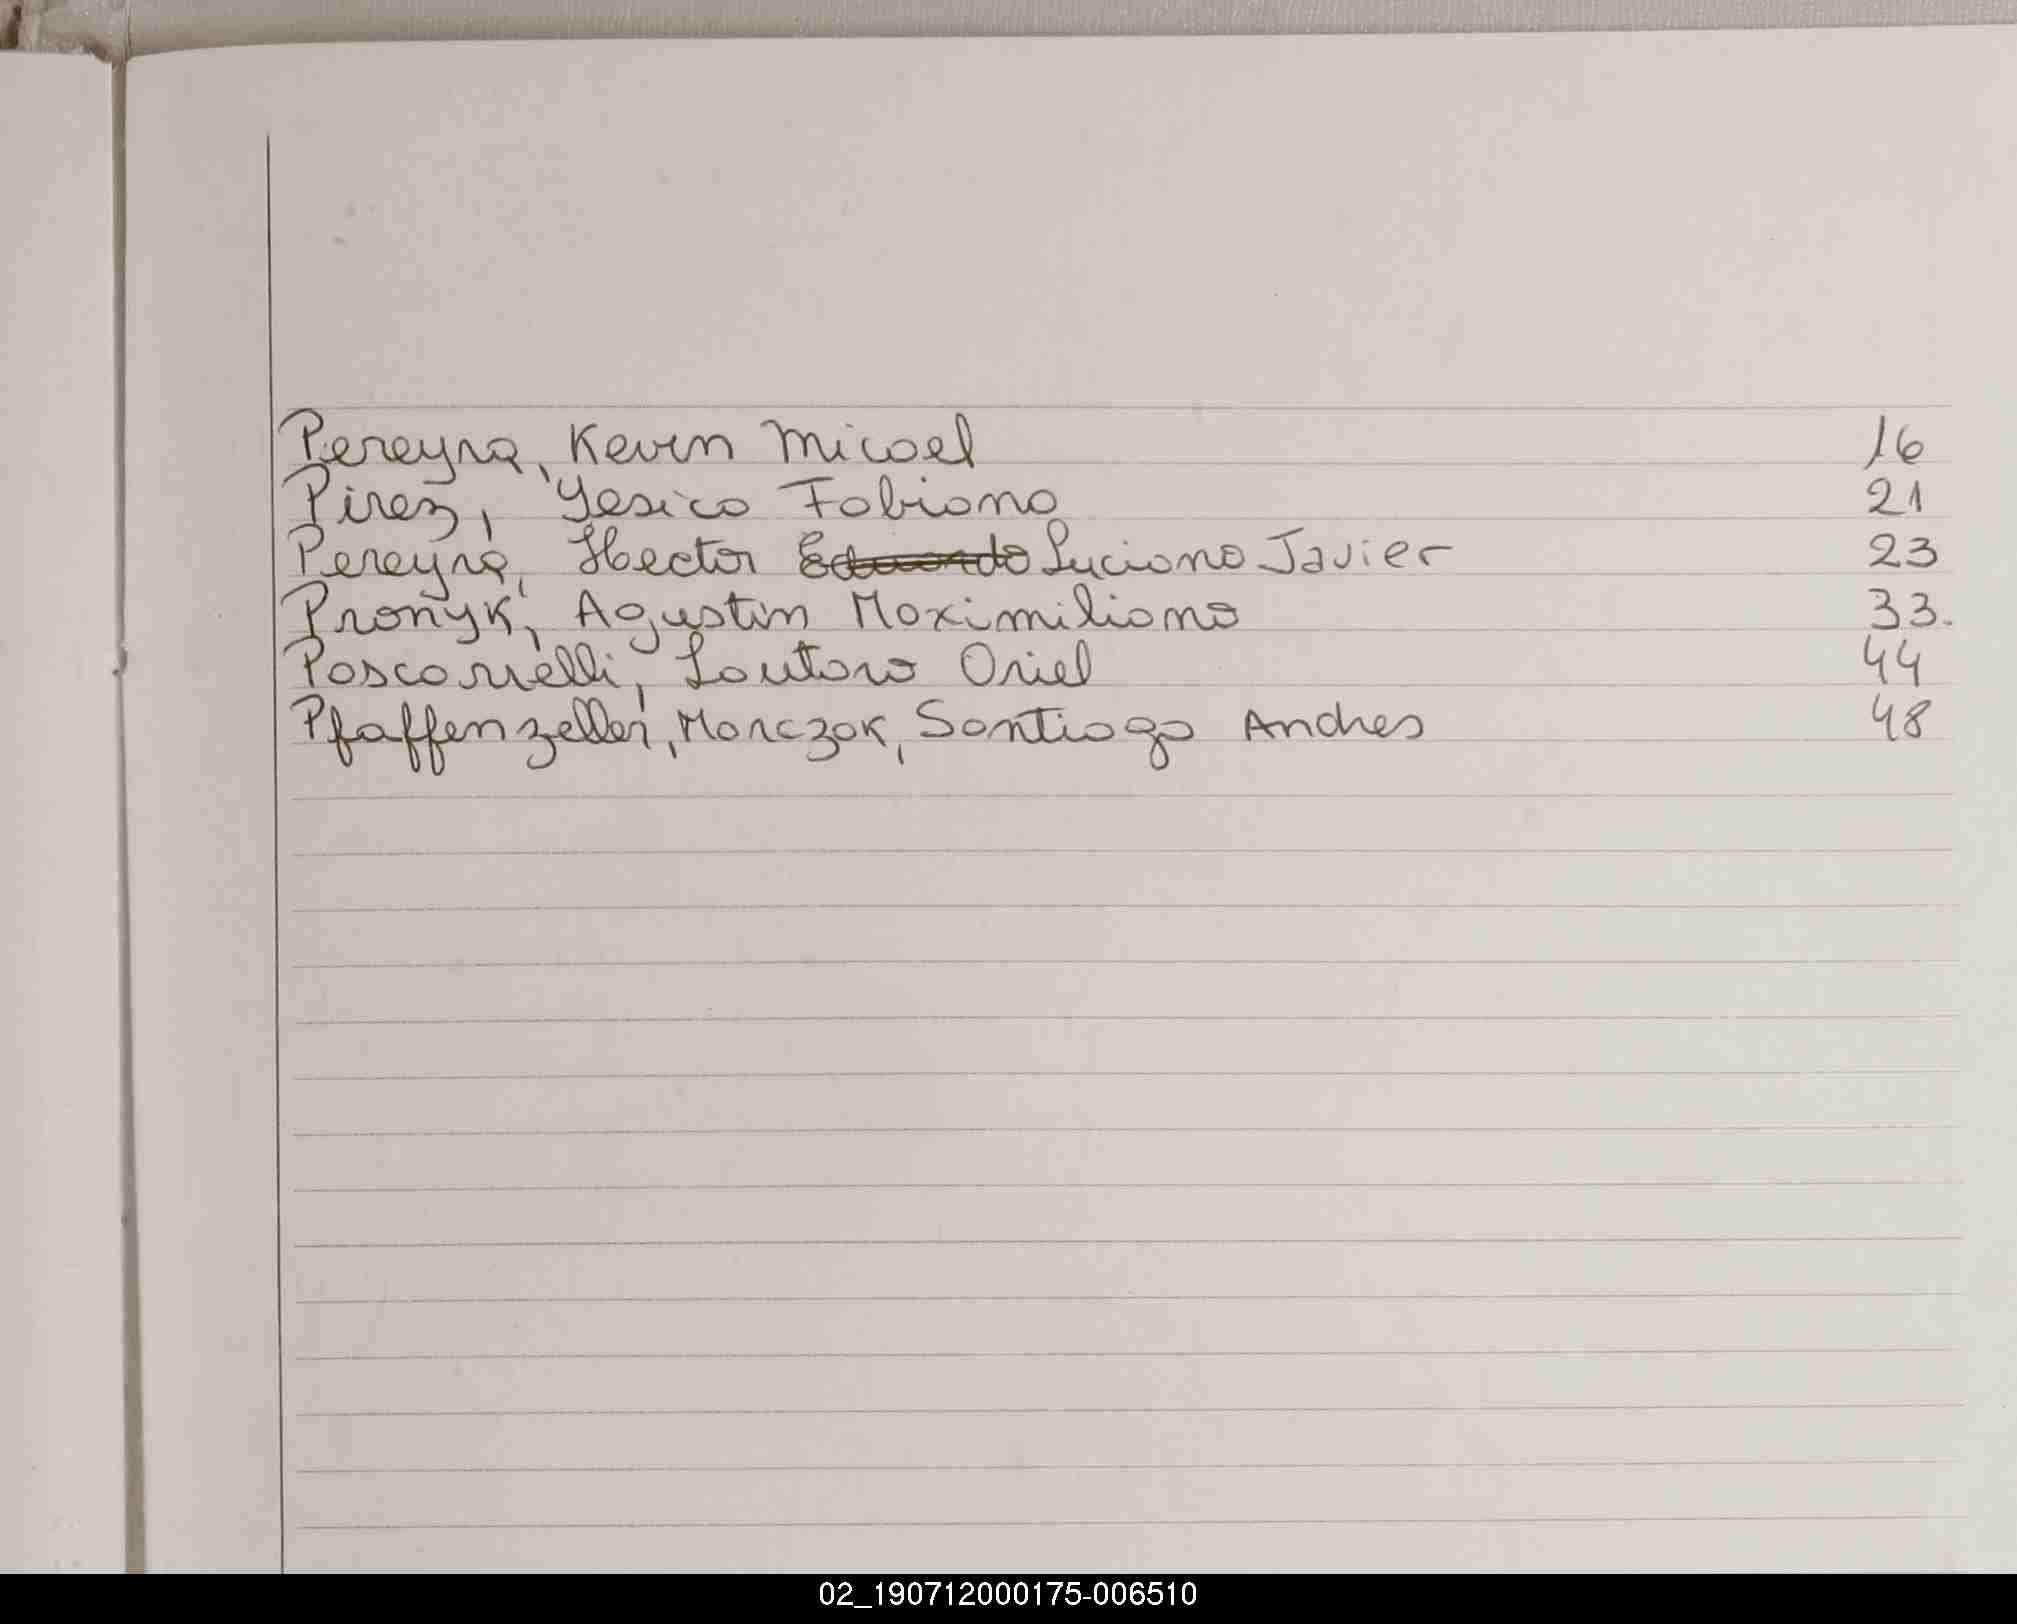 Pereyra, Kevin Micael 16
Pirez, Yesica Fabiana 21
Pereyra, Hector Eduardo Luciano Javier 23
Pronyk, Agustin Maximiliano 33.
Pascarielli, Lautaro Oriel 44
Pfaffenzeller, Marczok, Santiago Andres 48
02_190712000175-006510